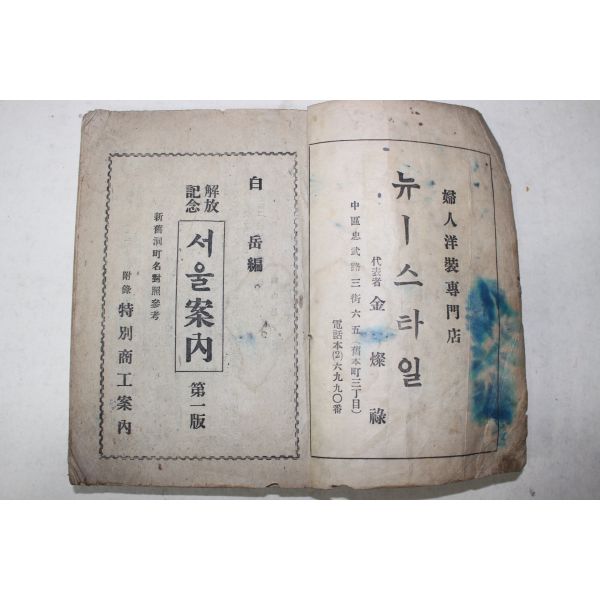 婦人洋裝專門店
뉴ー스타일
代表者 金燦祿
中區忠武路三街六五(舊本町三丁目)
電話本(2)六九九〇番
白岳編
解放
記念
서울案內 第一版
新舊洞町名對照參考
附錄 特別商工案內